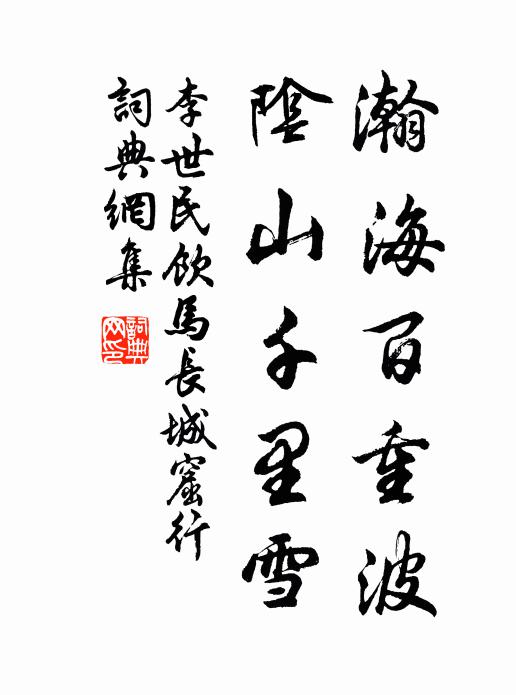 瀚海百重波
陰山千里雪
李世民飲馬長城窟行
詞典網集
詞典網印